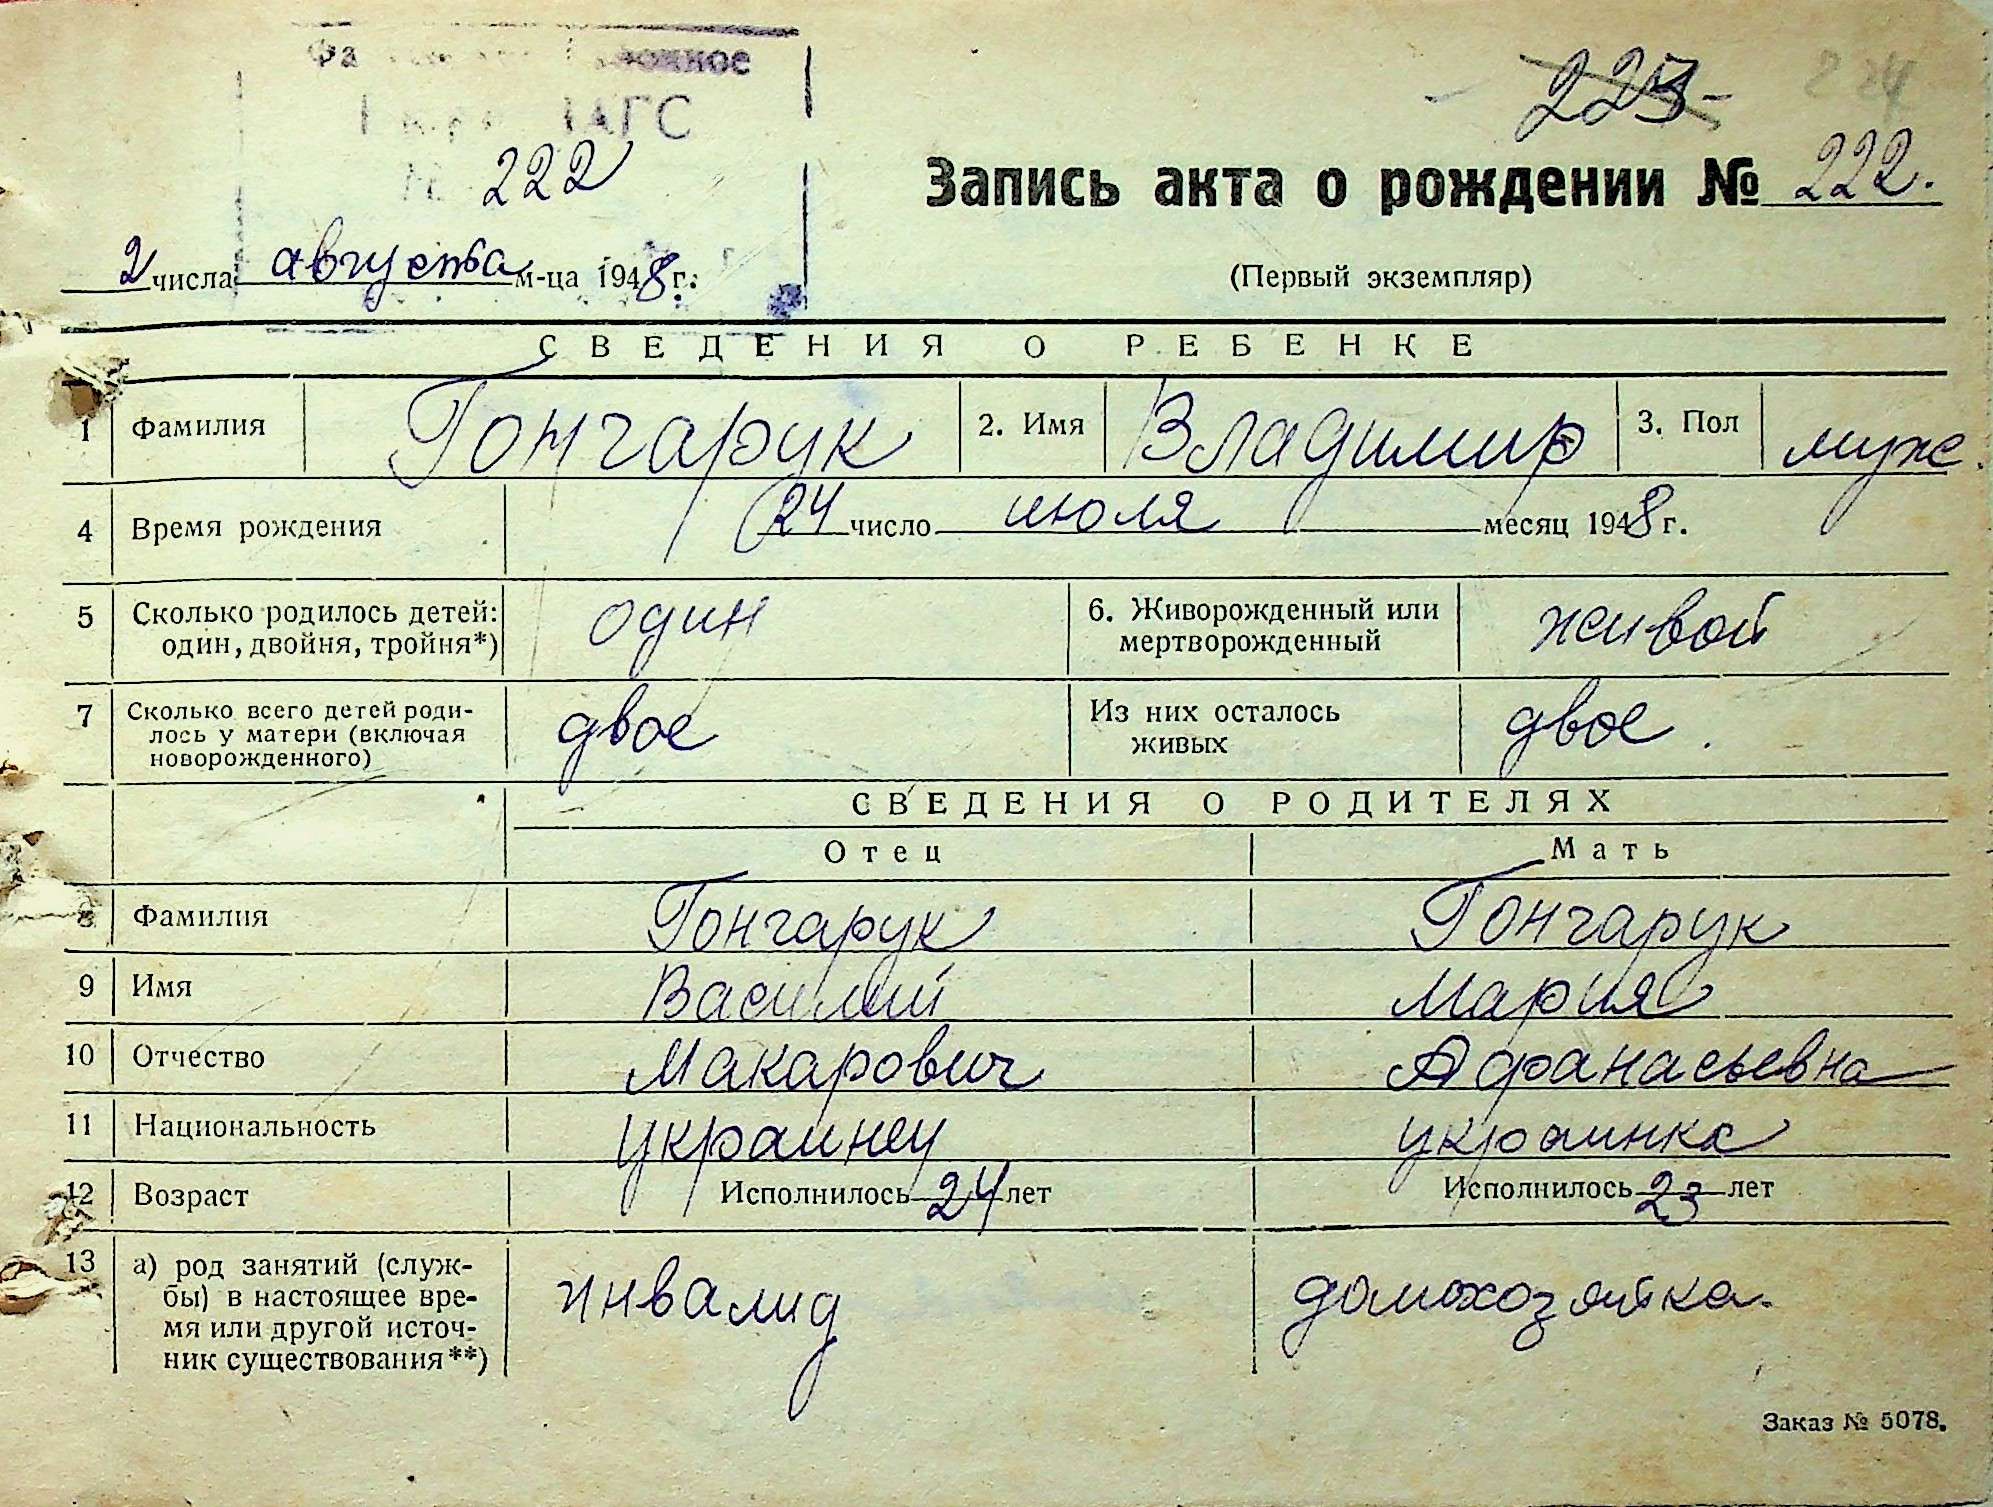 ЗАГС
222
223
224
Запись акта о рождении № 222.
2 числа августа м-ца 1948 г.
(Первый экземпляр)
СВЕДЕНИЯ О РЕБЕНКЕ
1 Фамилия Гончарук 2. Имя Владимир 3. Пол муж.
4 Время рождения 24 число июля месяц 1948 г.
5 Сколько родилось детей: один 6. Живорожденный или живой
один, двойня, тройня*) мертворожденный
7 Сколько всего детей роди- двое Из них осталось двое.
лось у матери (включая живых
новорожденного)
СВЕДЕНИЯ О РОДИТЕЛЯХ
Отец Мать
8 Фамилия Гончарук Гончарук
9 Имя Василий Мария
10 Отчество Макарович Афанасьевна
11 Национальность украинец украинка
12 Возраст Исполнилось 24 лет Исполнилось 23 лет
13 а) род занятий (служ- инвалид домохозяйка.
бы) в настоящее вре-
мя или другой источ-
ник существования**)
Заказ № 5078.